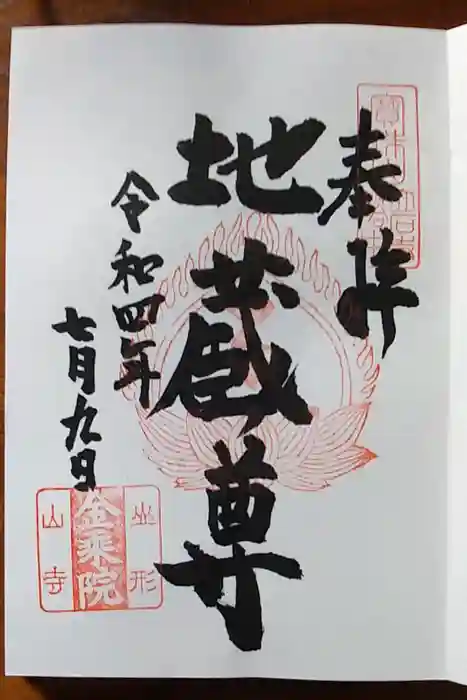 奉拝
地蔵尊
令和四年
七月九日
坐形
金乗院
山寺